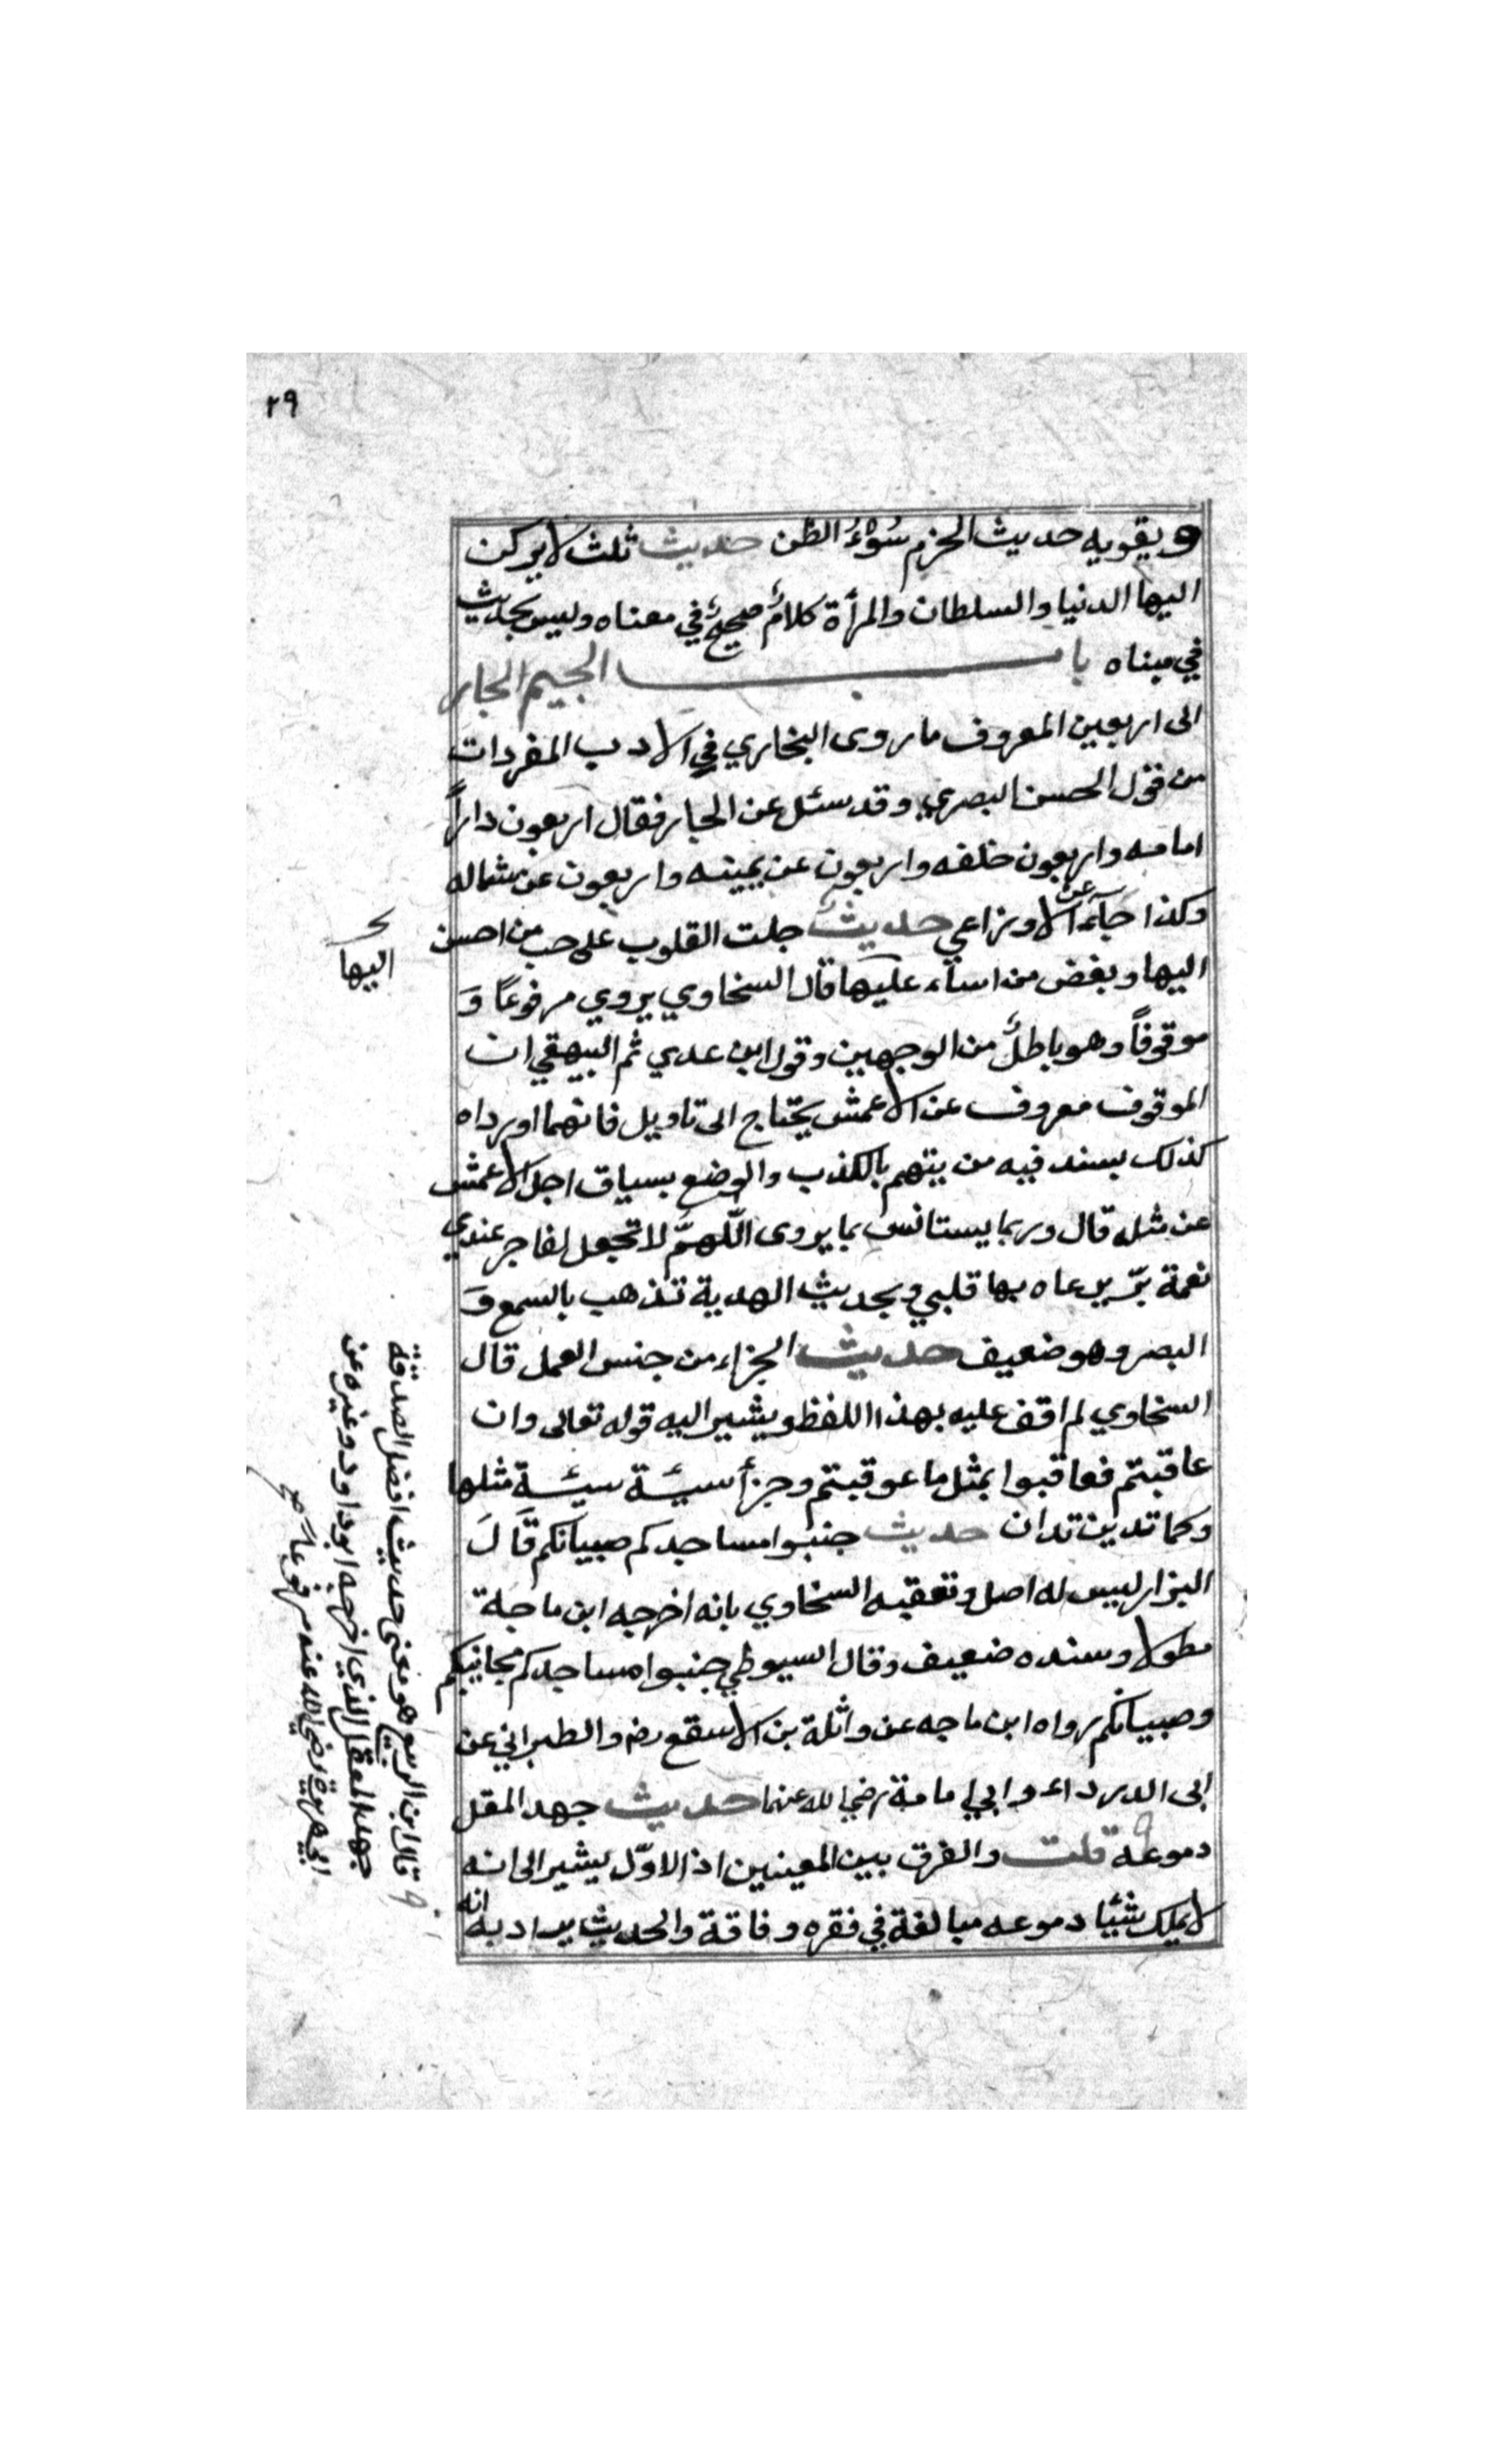 ٢٩
ويقويه حديث الحزم سُوْءُ الظن حديث ثلث لا يركن
اليها الدنيا والسلطان والمرأة كلامٌ صحيحٌ في معناه وليس بحديث
في مبناه باب الجيم الجار
الى اربعين المعروف ما روى البخاري في الادب المفردات
من قول الحسن البصري وقد سئل عن الجار فقال اربعون داراً
امامه واربعون خلفه واربعون عن يمينه واربعون عن شماله
وكذا جآء عن الاوزاعي حديث جلت القلوب على حب من احسن
اليها
اليها وبغض من اسآء عليها قال السخاوي يروي مرفوعاً وَ
موقوفاً وهو باطلٌ من الوجهين وقول ابن عدي ثم البيهقي ان
الموقوف معروف عن الاعمش يحتاج الى تاويل فانهما اورداه
كذلك بسند فيه من يتهم بالكذب والوضع بسياق اجل الاعمش
عن مثله قال وربما يستانس بما يروى اللّهمَّ لا تجعل لفاجر عندي
نعمة برّ يرعاه بها قلبي وبحديث الهدية تذهب بالسمع وَ
البصر وهو ضعيف حديث الجزاء من جنس العمل قال
السخاوي لم اقف عليه بهذا اللفظ ويشير اليه قوله تعالى وان
عاقبتم فعاقبوا بمثل ما عوقبتم وجزأ سيئة سيئة مثلها
وكما تدين تدان حديث جنبوا مساجدكم صبيانكم قَالَ
البزار ليس له اصل وتعقبه السخاوي بانه اخرجه ابن ماجة
مطولا وسنده ضعيف وقال السيوطي جنبوا مساجدكم مجانينكم
وصبيانكم رواه ابن ماجه عن واثلة بن الاسقع رض والطبراني عن
ابى الدرداء وابي امامة رضي الله عنهما حديث جهد المقل
دموعه قلت والفرق بين المعنيين اذ الاوّل يشير الى انه
لا يملك شيئا دموعه مبالغة في فقره وفاقة والحديث يراد به انه
قال ابن الربيع هو معنى حديث افضل الصدقة
جهد المقل الذي اخرجه ابو داود وغيره عن
ابي هريرة رضي الله عنه مرفوعاً صح